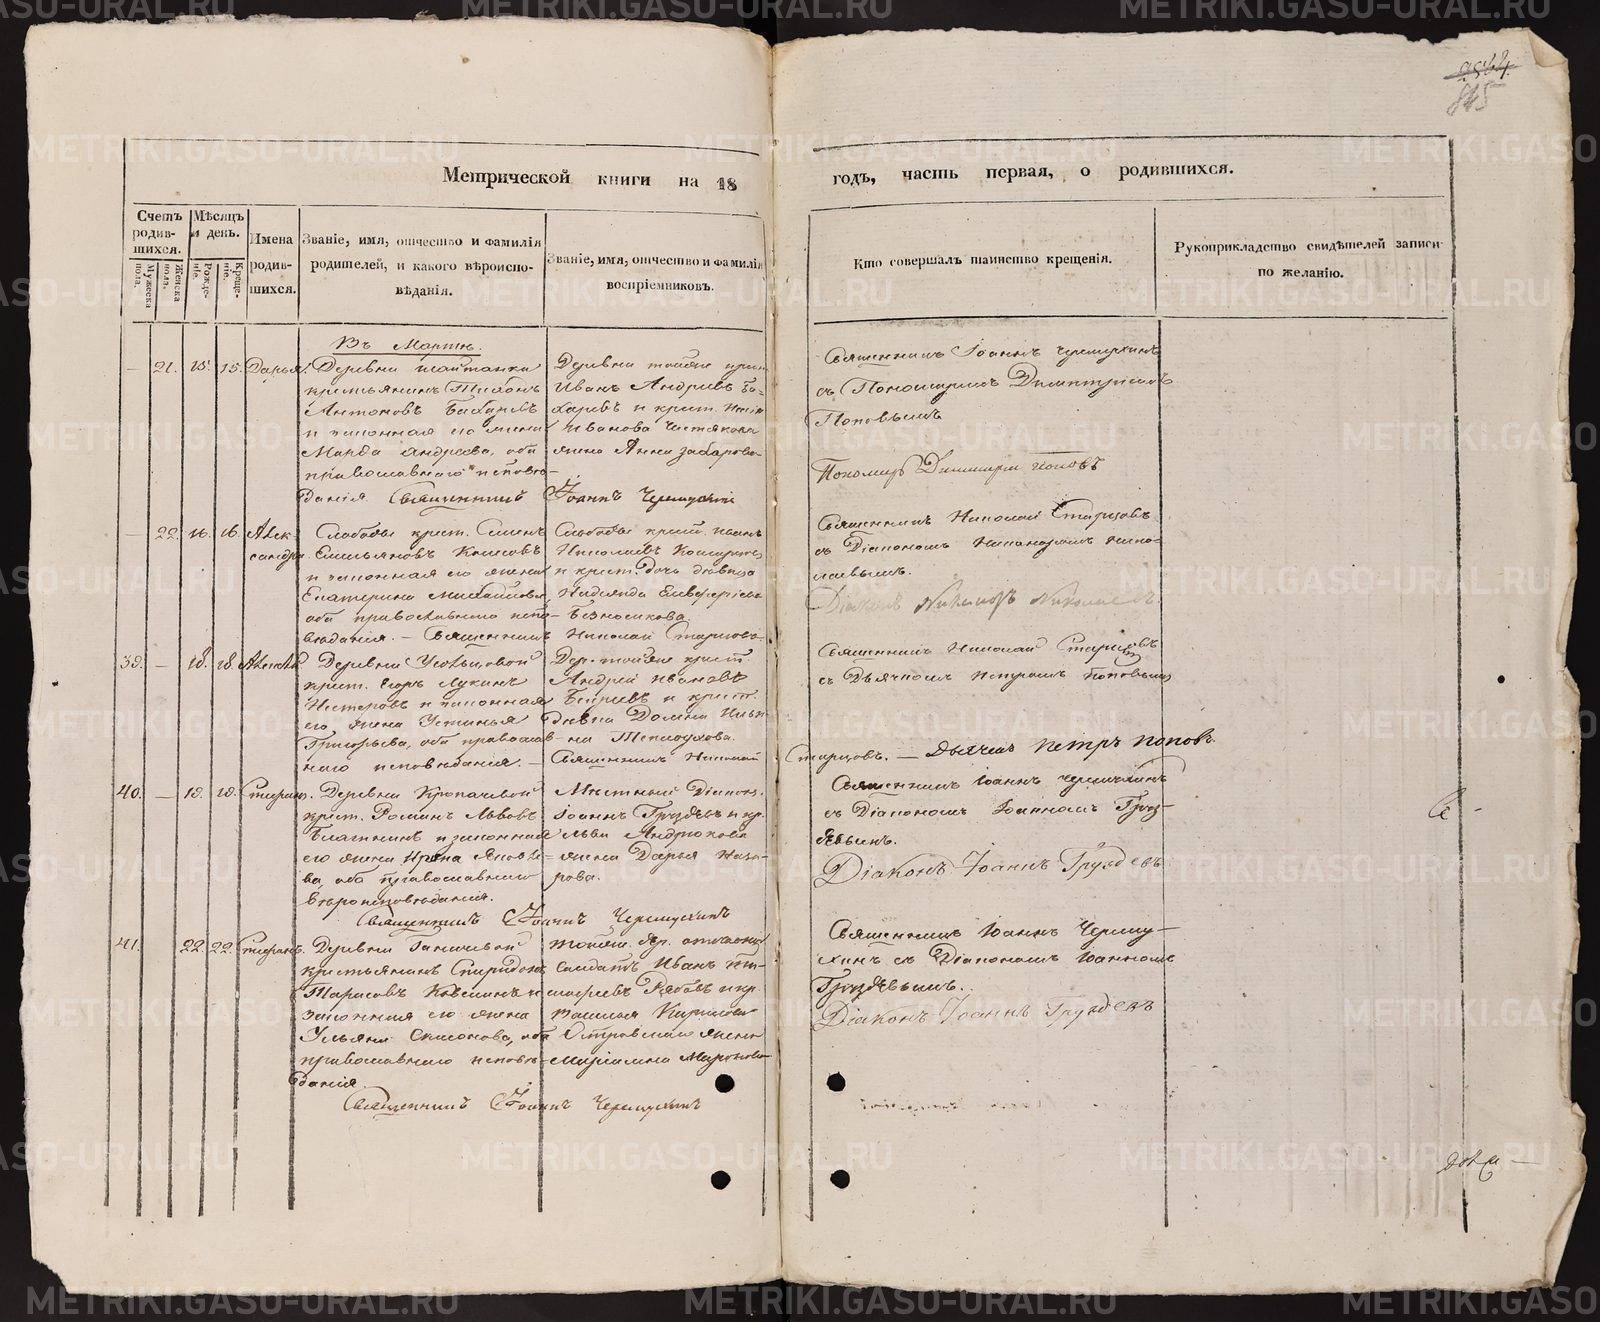 9564.
845
Метрической книги на 18
годъ, часть первая, о родившихся.
Счетъ родив-шихся.
Мужеска пола.
Женска пола.
Мѣсяцъ и день.
Рожде-ніе.
Креще-ніе.
Имена родив-шихся.
Званіе, имя, отчество и фамилія
родителей, и какого вѣроиспо-
вѣданія.
Званіе, имя, отчество и фамилія
воспріемниковъ.
Кто совершалъ таинство крещенія.
Рукоприкладство свидѣтелей записи
по желанію.
Въ Мартѣ.
21. 15. 15. Дарья
Деревни Шайтанки
крестьянинъ Тихонъ
Антоновъ Бахаревъ
и законная его жена
Марѳа Андреева, оба
православнаго исповѣ-
данія. Священникъ Іоаннъ Черемухинъ
Деревни тойже крест.
Иванъ Андреевъ Ба-
харевъ и крест.
Иванова Чистякова
жена Анна Захарова
Священникъ Іоаннъ Черемухинъ
съ Пономаремъ Димитріемъ
Поповымъ
Пономарь Димитрій Поповъ
22. 16. 16. Алек-
сандра.
Слободы крест. Семенъ
Емельяновъ
и законная его жена
Екатерина Михайлова,
оба православнаго испо-
вѣданія. – Священникъ Николай Старцовъ.
Слободы крест. Иванъ
Николаевъ
и крест. дочь дѣвица
Надежда Елевферіева
Безносикова
Священникъ Николай Старцовъ
съ Діакономъ Никаноромъ Нико-
лаевымъ.
Діаконъ Никаноръ Николаевъ.
39. – 18. 18. Алексѣй
Деревни Усольцовой
крест. Егоръ Лукинъ
Нестеровъ и законная
его жена Устинья
Григорьева, оба православ-
наго исповѣданія. –
Дер. тойже крест.
Андрей Ивановъ
и крест.
дѣвка Домна Ильи-
на Теплоухова.
Священникъ Николай
Старцовъ. – Дьячекъ Петръ Поповъ.
Священникъ Николай Старцовъ
съ Дьячкомъ Петромъ Поповымъ
40. – 18. 18. Стефанъ.
Деревни Кропачевой
крест. Романъ Львовъ
и законная
его жена Ирина Яковле-
ва, оба православнаго
вѣроисповѣданія.
Священникъ Іоаннъ Черемухинъ
Мѣстный Діаконъ
Іоаннъ Груздевъ и кр.
Льва Андрюкова
жена Дарья Наза-
рова.
Священникъ Іоаннъ Черемухинъ
съ Діакономъ Іоанномъ Груз-
девымъ.
Діаконъ Іоаннъ Груздевъ
41. 22. 22. Стефанъ.
Деревни
крестьянинъ Спиридонъ
Тарасовъ и
законная его жена
Ульяна Симонова, оба
православнаго исповѣ-
данія.
Священникъ Іоаннъ Черемухинъ
тойже дер.
солдатъ Иванъ Ти-
моѳеевъ Рябовъ и кр.
Василья Кирилова
Островскаго жена
Маріамна Миронова
Священникъ Іоаннъ Черему-
хинъ съ Діакономъ Іоанномъ
Груздевымъ.
Діаконъ Іоаннъ Груздевъ
METRIKI.GASO-URAL.RU